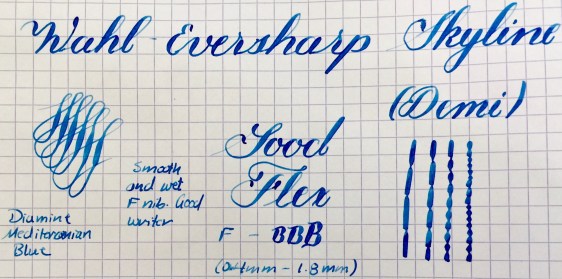 Wahl-Eversharp Skyline
(Demi)
Good
Flex
F - BBB
(0.4mm - 1.8mm)
Smooth
and wet
F nib. Good
writer
Diamine
Mediterranian
Blue